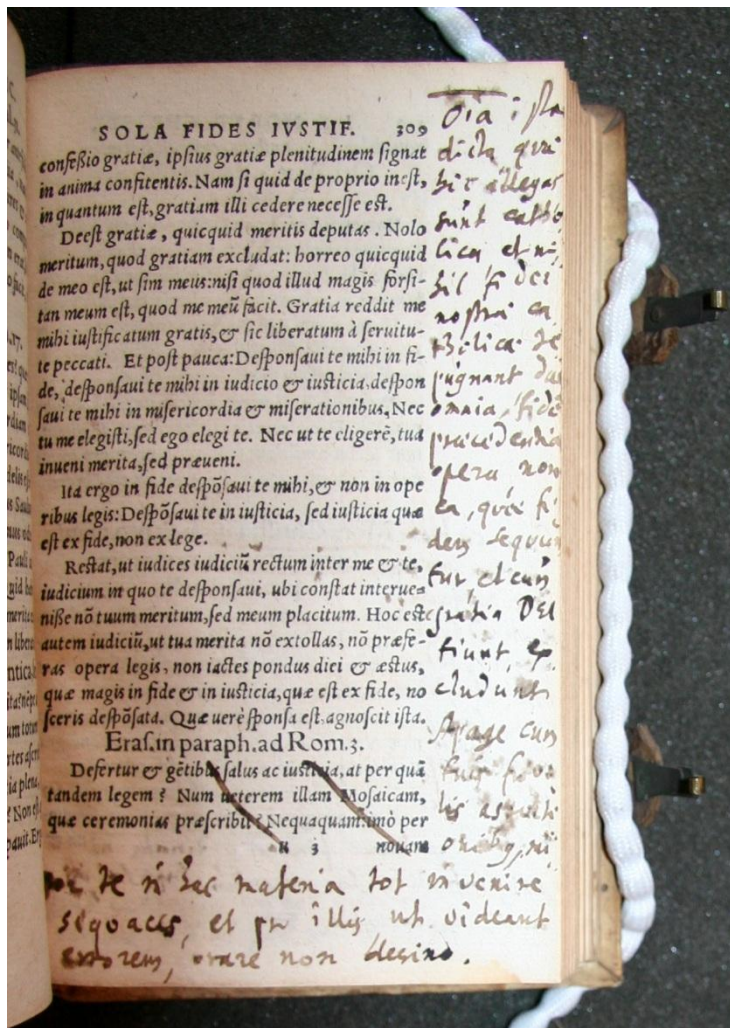 SOLA FIDES IVSTIF. 309
confeßio gratiæ, ipsius gratiæ plenitudinem signat
in anima confitentis. Nam si quid de proprio inest,
in quantum est, gratiam illi cedere necesse est.
Deest gratiæ, quicquid meritis deputas. Nolo
meritum, quod gratiam excludat: horreo quicquid
de meo est, ut sim meus: nisi quod illud magis forsi-
tan meum est, quod me meũ facit. Gratia reddit me
mihi iustificatum gratis, & sic liberatum à seruitu-
te peccati. Et post pauca: Desponsaui te mihi in fi-
de, desponsaui te mihi in iudicio & iusticia, despon
saui te mihi in misericordia & miserationibus. Nec
tu me elegisti, sed ego elegi te. Nec ut te eligerē, tua
inueni merita, sed præueni.
Ita ergo in fide despõsaui te mihi, & non in ope
ribus legis: Despõsaui te in iusticia, sed iusticia quæ
est ex fide, non ex lege.
Restat, ut iudices iudiciũ rectum inter me & te,
iudicium in quo te desponsaui, ubi constat interue-
nisse nõ tuum meritum, sed meum placitum. Hoc est
autem iudiciũ, ut tua merita nõ extollas, nõ præfe-
ras opera legis, non iactes pondus diei & æstus,
quæ magis in fide & in iusticia, quæ est ex fide, no
sceris despõsata. Quæ uerè sponsa est, agnoscit ista.
Eras. in paraph. ad Rom. 3.
Defertur & gētibus salus ac iusticia, at per quã
tandem legem? Num ueterem illam Mosaicam,
quæ ceremonias præscribit? Nequaquam: imò per
u 3 nouam
Oĩa ista
dicta quæ
hic allegas
sunt catho
lica et ni
hil fidei
nostræ ca
tholicæ re
pugnant
omnia, fidē
præcedentia
opera non
ea, quæ fi
dem sequun
tur et cum
gratia DEI
fiunt, ex
cludunt
Apage cum
tuis
te in hac materia tot invenire
seqvaces, et pro illis ut videant
errorem, orare non desino.